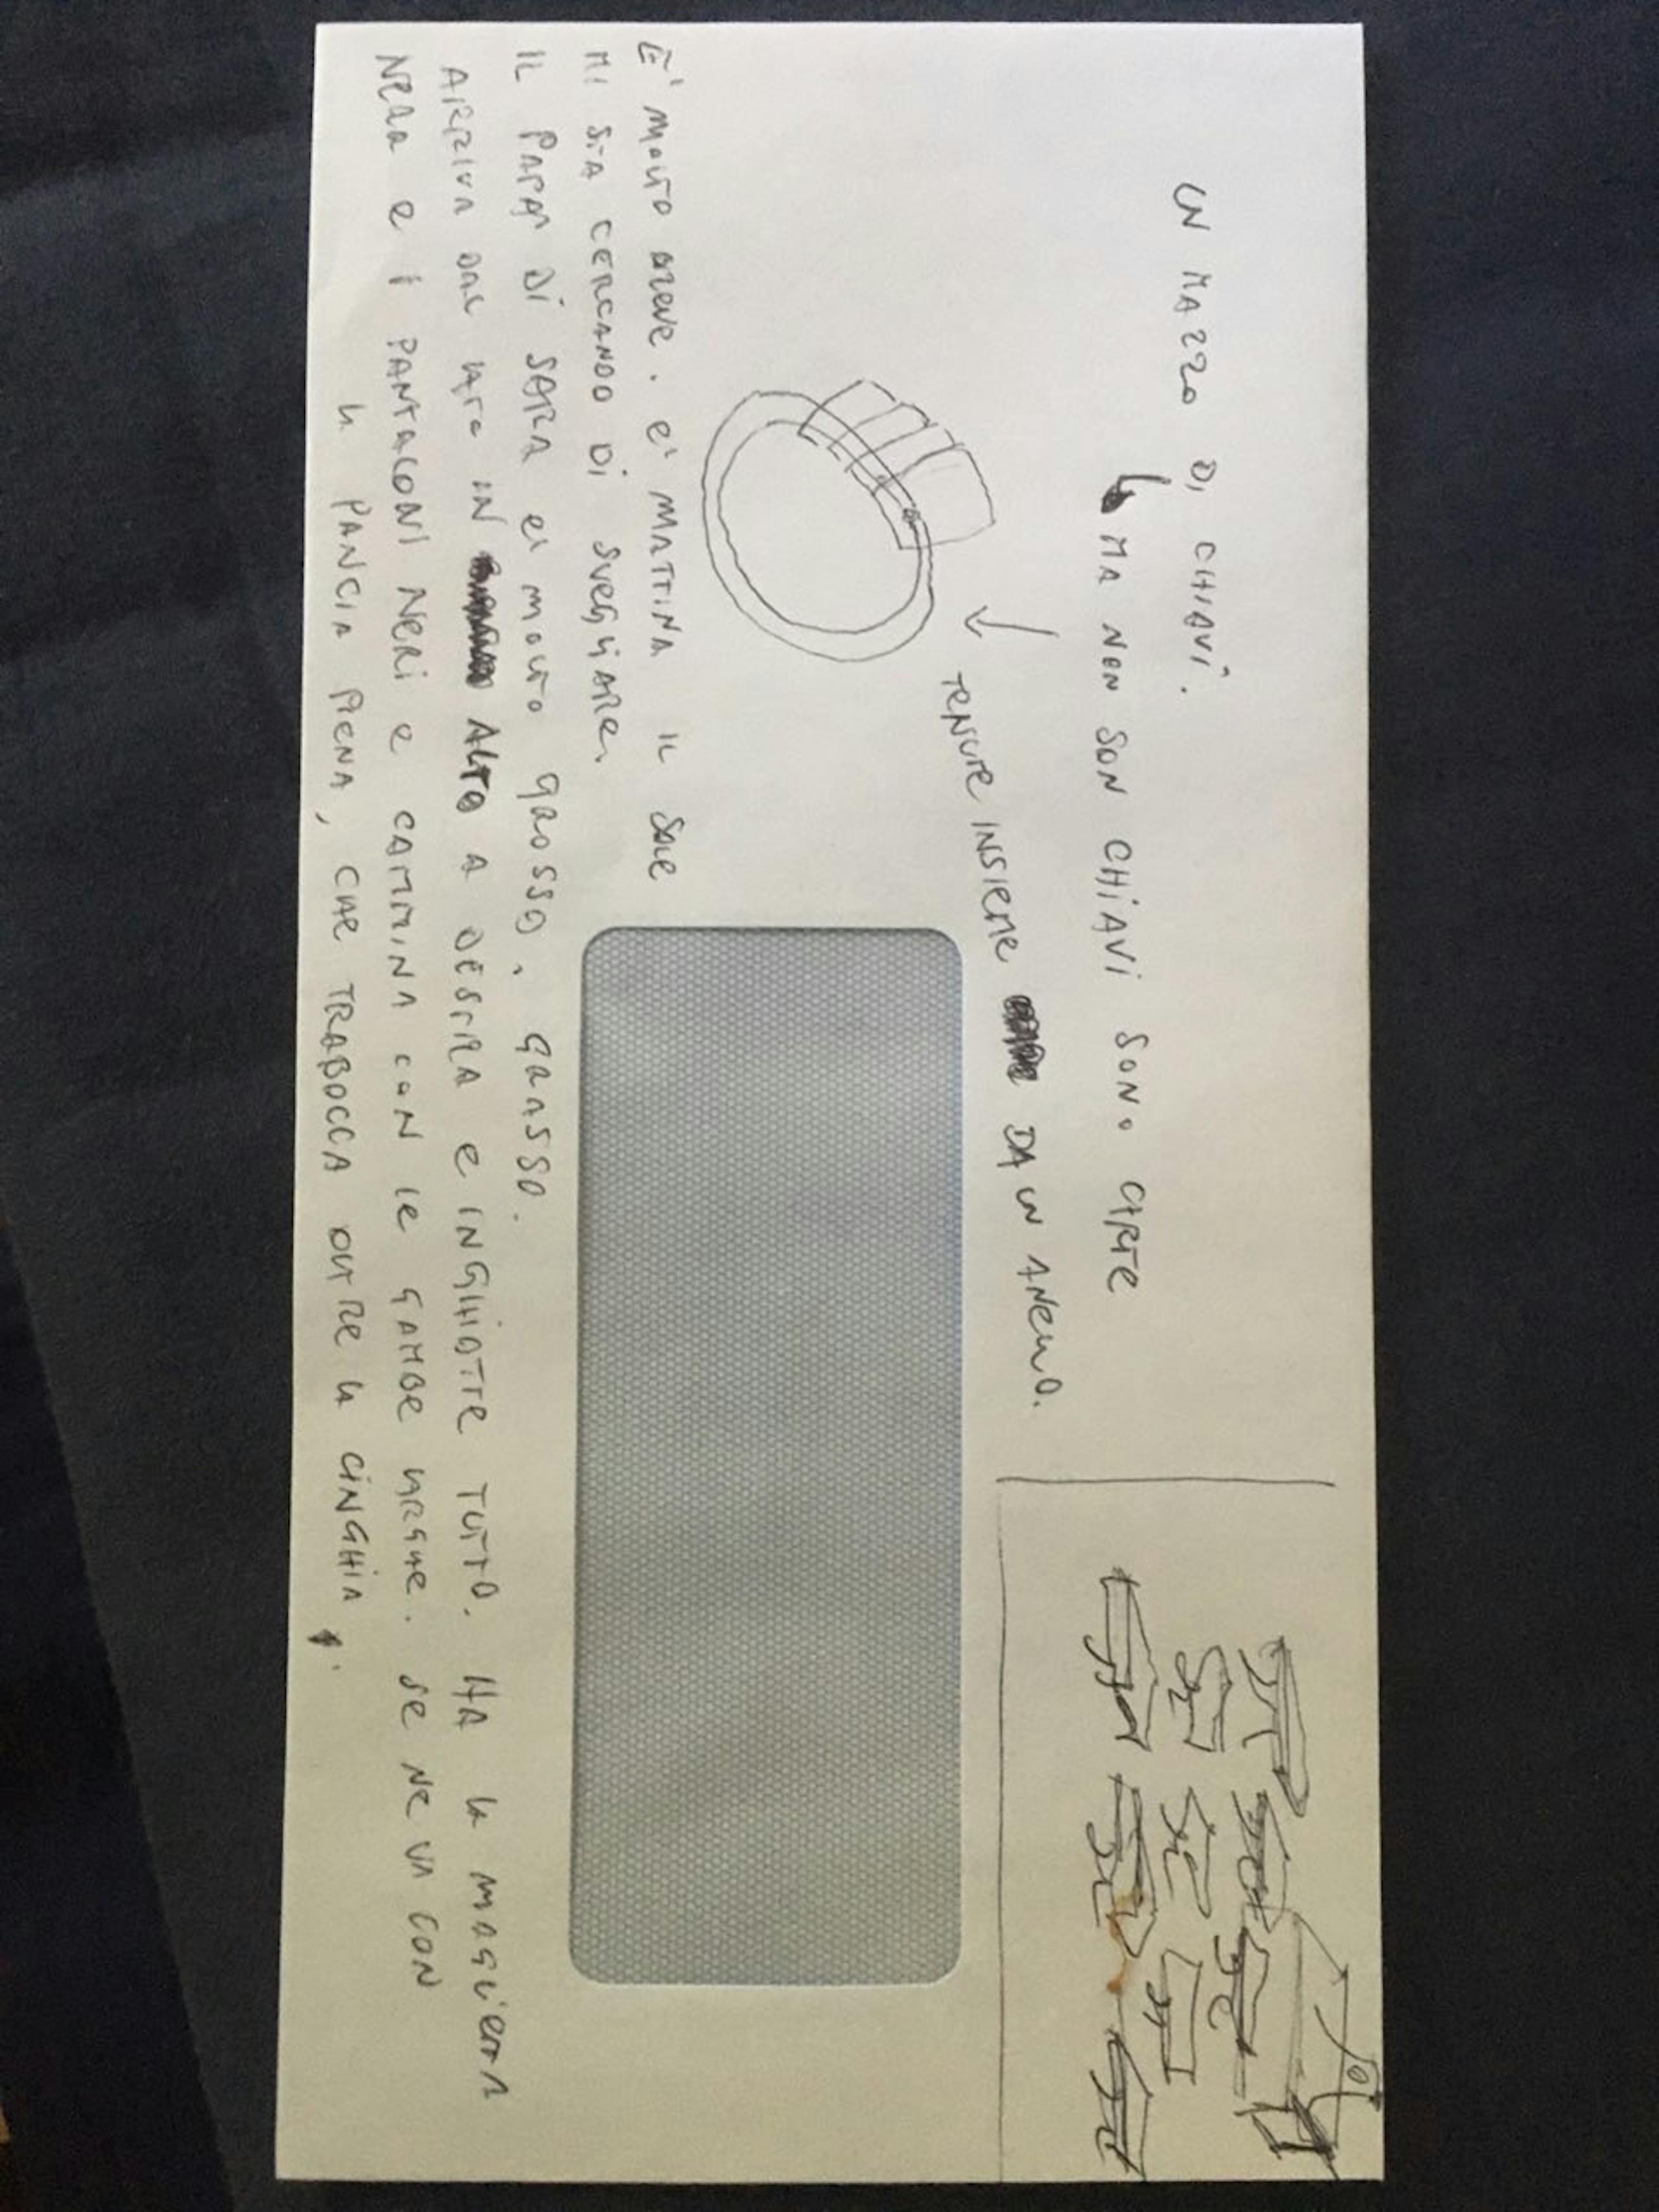 UN MAZZO DI CHIAVI.
MA NON SON CHIAVI SONO CARTE
TENUTE INSIEME DA UN ANELLO.
E' MOLTO BREVE. E' MATTINA IL SOLE
MI STA CERCANDO DI SVEGLIARE.
IL PAPA' DI SARA E' MOLTO GROSSO, GRASSO.
ARRIVA DAL LATO IN ALTO A DESTRA E INGHIOTTE TUTTO. HA LA MAGLIETTA
NERA E I PANTALONI NERI E CAMMINA CON LE GAMBE LARGHE. SE NE VA CON
LA PANCIA PIENA, CHE TRABOCCA OLTRE LA CINGHIA.